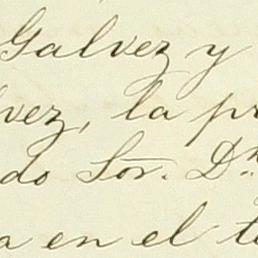 Galvez y
vez, la pr
do Sor. Dn.
a en el t